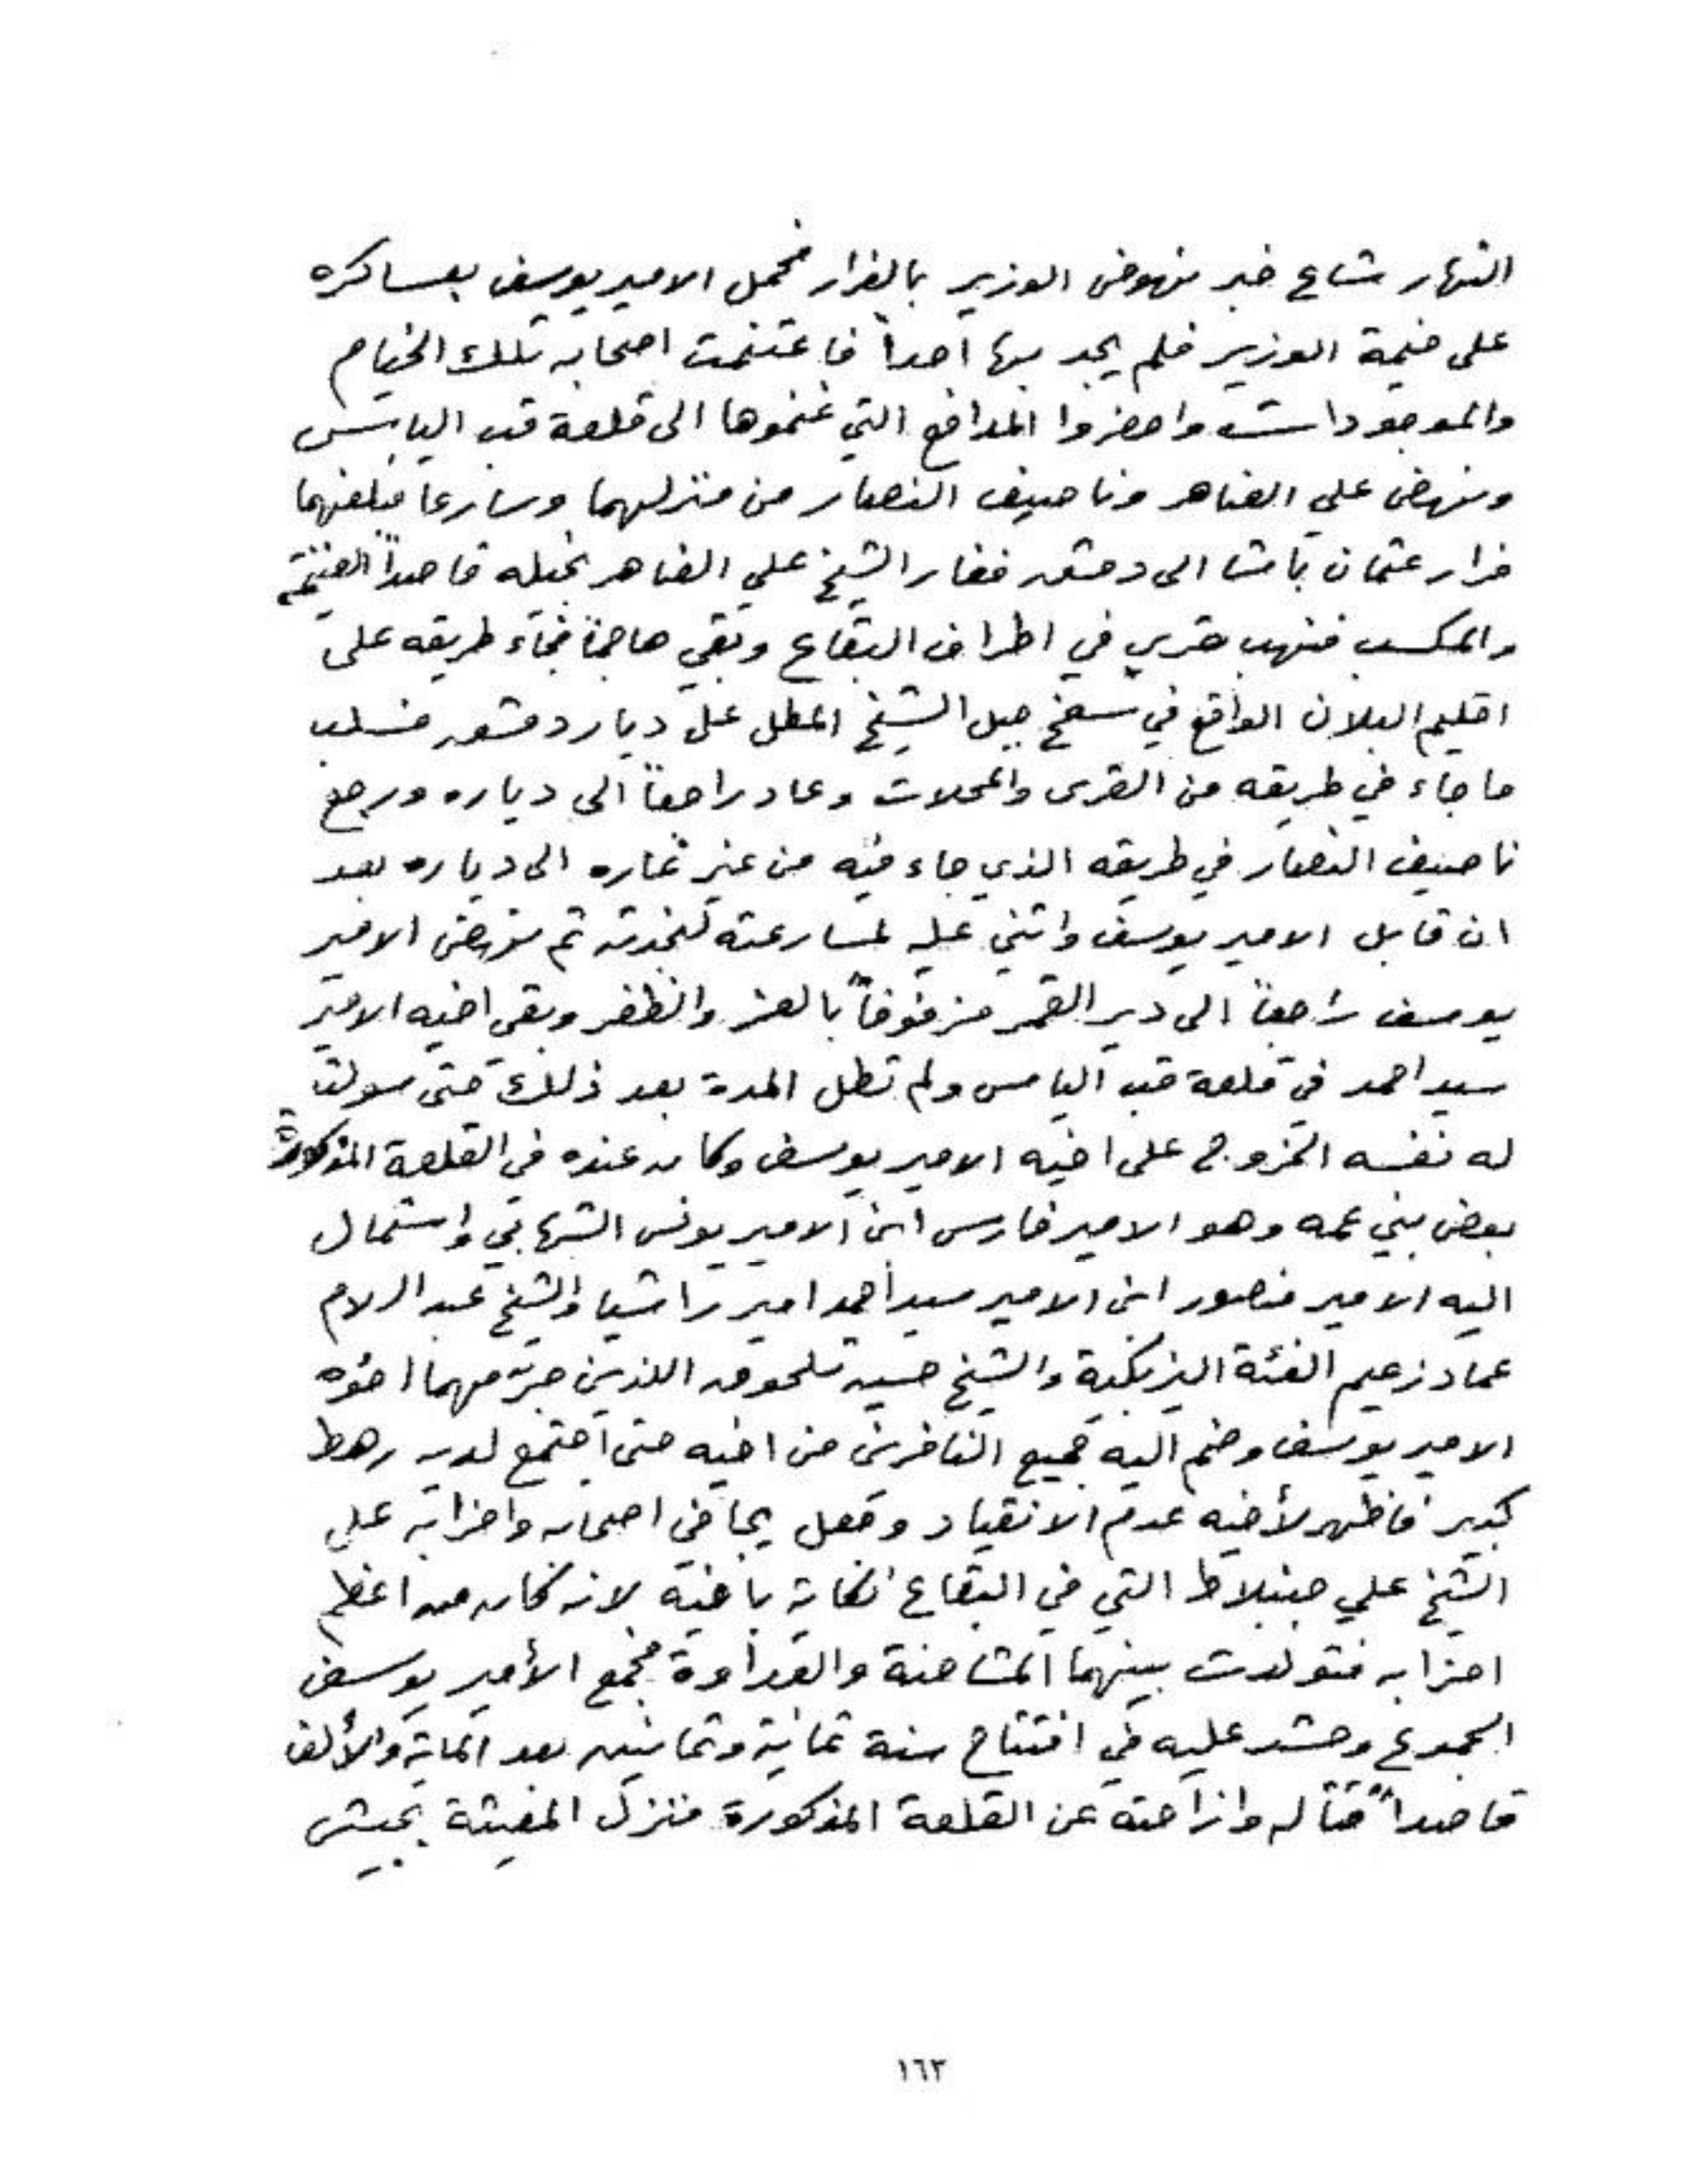 النهار شاع خبر نهوض الوزير بالفرار فحمل الامير يوسف بعساكره
على خيمة الوزير فلم يجد بها احداً فاغتنمت اصحابه تلك الخيام
والموجودات واحضروا المدافع التي غنموها الى قلعة قب الياس
ونهض علي الضاهر وناصيف النصار من منزلهما وسارعا فبلغهما
فرار عثمان باشا الى دمشق فغار الشيخ علي الضاهر بخيله قاصداً الغنيمة
والمكسب فنهب قرى في اطراف البقاع وبقي هاجماً فجاء طريقه على
اقليم البلان الواقع في سفح جبل الشيخ المطل على ديار دمشق فسلب
ما جاء في طريقه من القرى والمحلات وعاد راجعاً الى دياره ورجع
ناصيف النصار في طريقه الذي جاء فيه من غير غاره الى دياره بعد
ان قابل الامير يوسف واثني عليه لمسارعته لنجدته ثم نهض الامير
يوسف راجعاً الى دير القمر مزفوفاً بالعز والظفر وبقى اخيه الامير
سيد احمد في قلعة قب الياس ولم تطل المدة بعد ذلك حتى سولت
له نفسه الخروج على اخيه الامير يوسف وكان عنده في القلعة المذكورة
بعض بني عمه وهو الامير فارس ابن الامير يونس الشهابي واستمال
اليه الامير منصور ابن الامير سيد احمد امير راشيا والشيخ عبد السلام
عماد زعيم الفئة اليزبكية والشيخ حسين تلحوق اللذين جرمهما اخوه
الامير يوسف وضم اليه جميع النافرين من اخيه حتى اجتمع لديه رهط
كبير فاظهر لأخيه عدم الانقياد وجعل يجافي اصحابه واحزابه على
الشيخ علي جنبلاط التي في البقاع نكاية باخيه لانه كان من اعظم
احزابه فتولدت بينهما المشاحنة والعداوة فجمع الأمير يوسف
الجموع وحشد عليه في افتتاح سنة ثمانية وثمانين بعد الماية والألف
قاصداً قتاله وازاحته عن القلعة المذكورة فنزل المغيثة بجيش
١٦٣